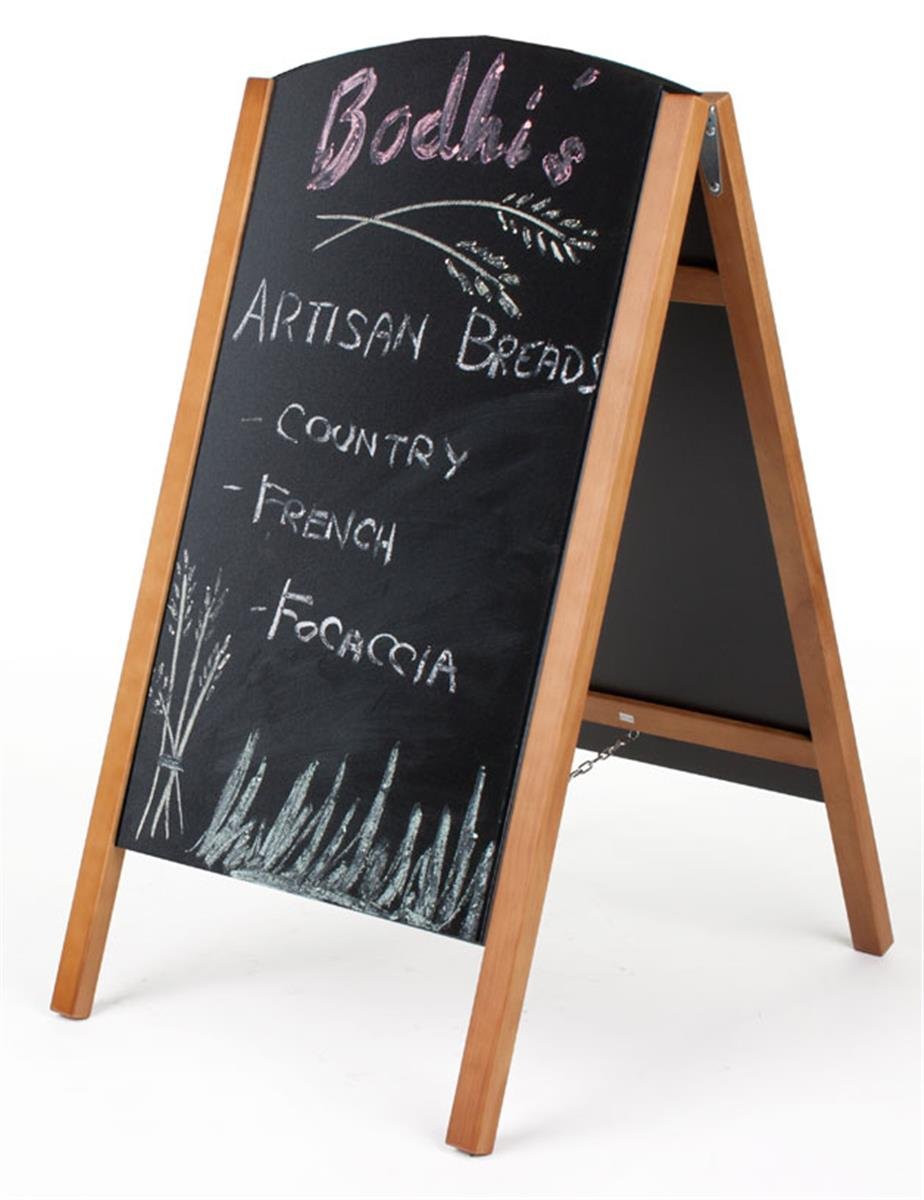 Bodhi's
ARTISAN BREADS
- COUNTRY
- FRENCH
- FOCACCIA